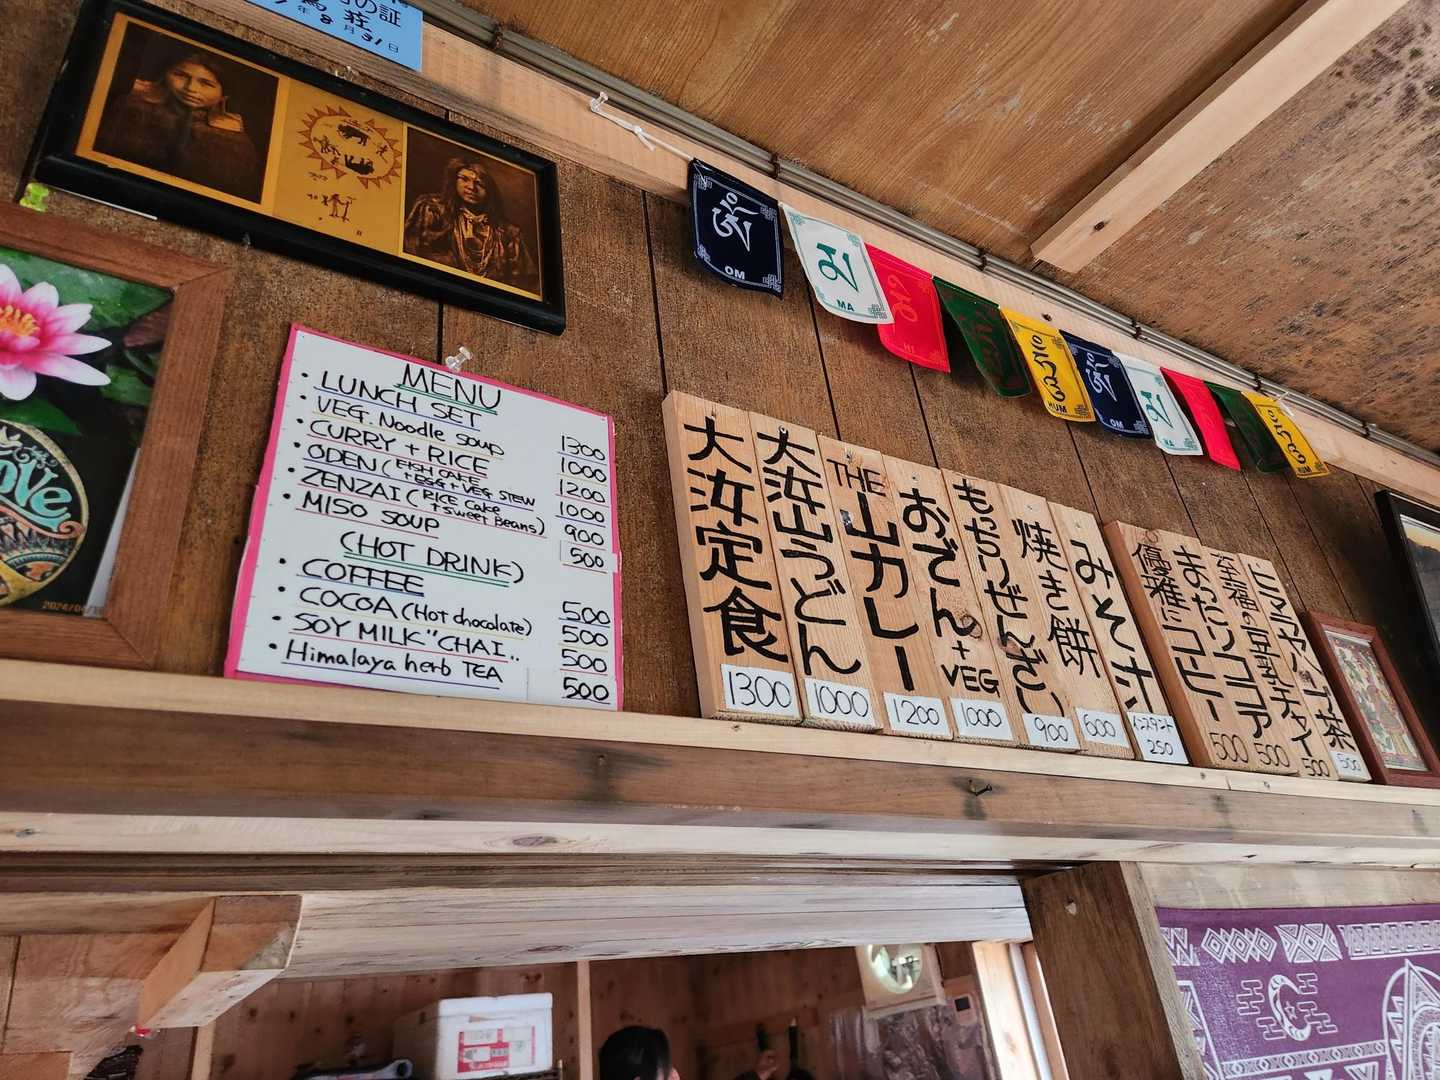 の証
荘
年8月31日
OM
MA
HI
HUM
OM
HUM
ove
2024/04/
MENU
・LUNCH SET 1300
・VEG. Noodle soup 1000
・CURRY + RICE 1200
・ODEN (FISH CAKE + EGG + VEG STEW 1000
・ZENZAI (RICE Cake + Sweet Beans) 900
・MISO SOUP 500
(HOT DRINK)
・COFFEE 500
・COCOA (Hot chocolate) 500
・SOY MILK "CHAI.. 500
・Himalaya herb TEA 500
大汝定食
1300
大汝山うどん
1000
THE山カレー
1200
おでん+VEG
1000
もっちりぜんざい
900
焼き餅
600
みそ汁
インスタント
250
優雅にコーヒー
500
まったりココア
500
幸福の豆乳チャイ
500
ヒマラヤハーブ茶
500